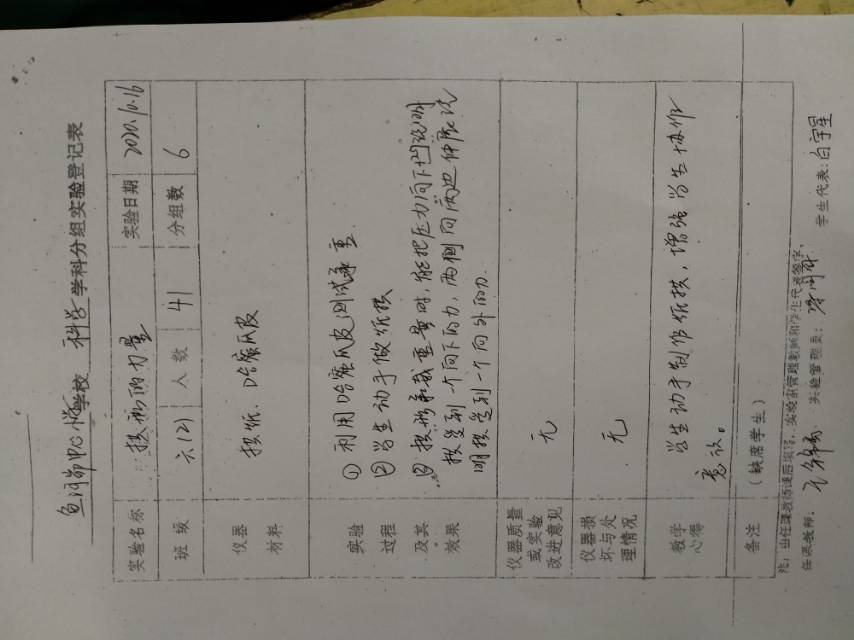 鱼河峁中心小学校 科学 学科分组实验登记表
实验名称 拱形的力量 实验日期 2020.10.16
班级 六(2) 人数 41 分组数 6
仪器材料 报纸、哈密瓜皮
实验过程及其效果
① 利用哈密瓜皮测试承重
② 学生动手做纸拱
③ 拱形承载重量时,能把压力向下凹说明
拱受到一个向下的力,两侧向两边伸展说
明拱受到一个向外的力
仪器质量或实验改进意见 无
仪器损坏与处理情况 无
教学心得 学生动手制作纸拱,增强学生协作
意识。
备注 (缺席学生)
注:由任课教师课后填写,实验室管理教师和学生代表签字。
任课教师: 实验管理员: 学生代表:白宇星